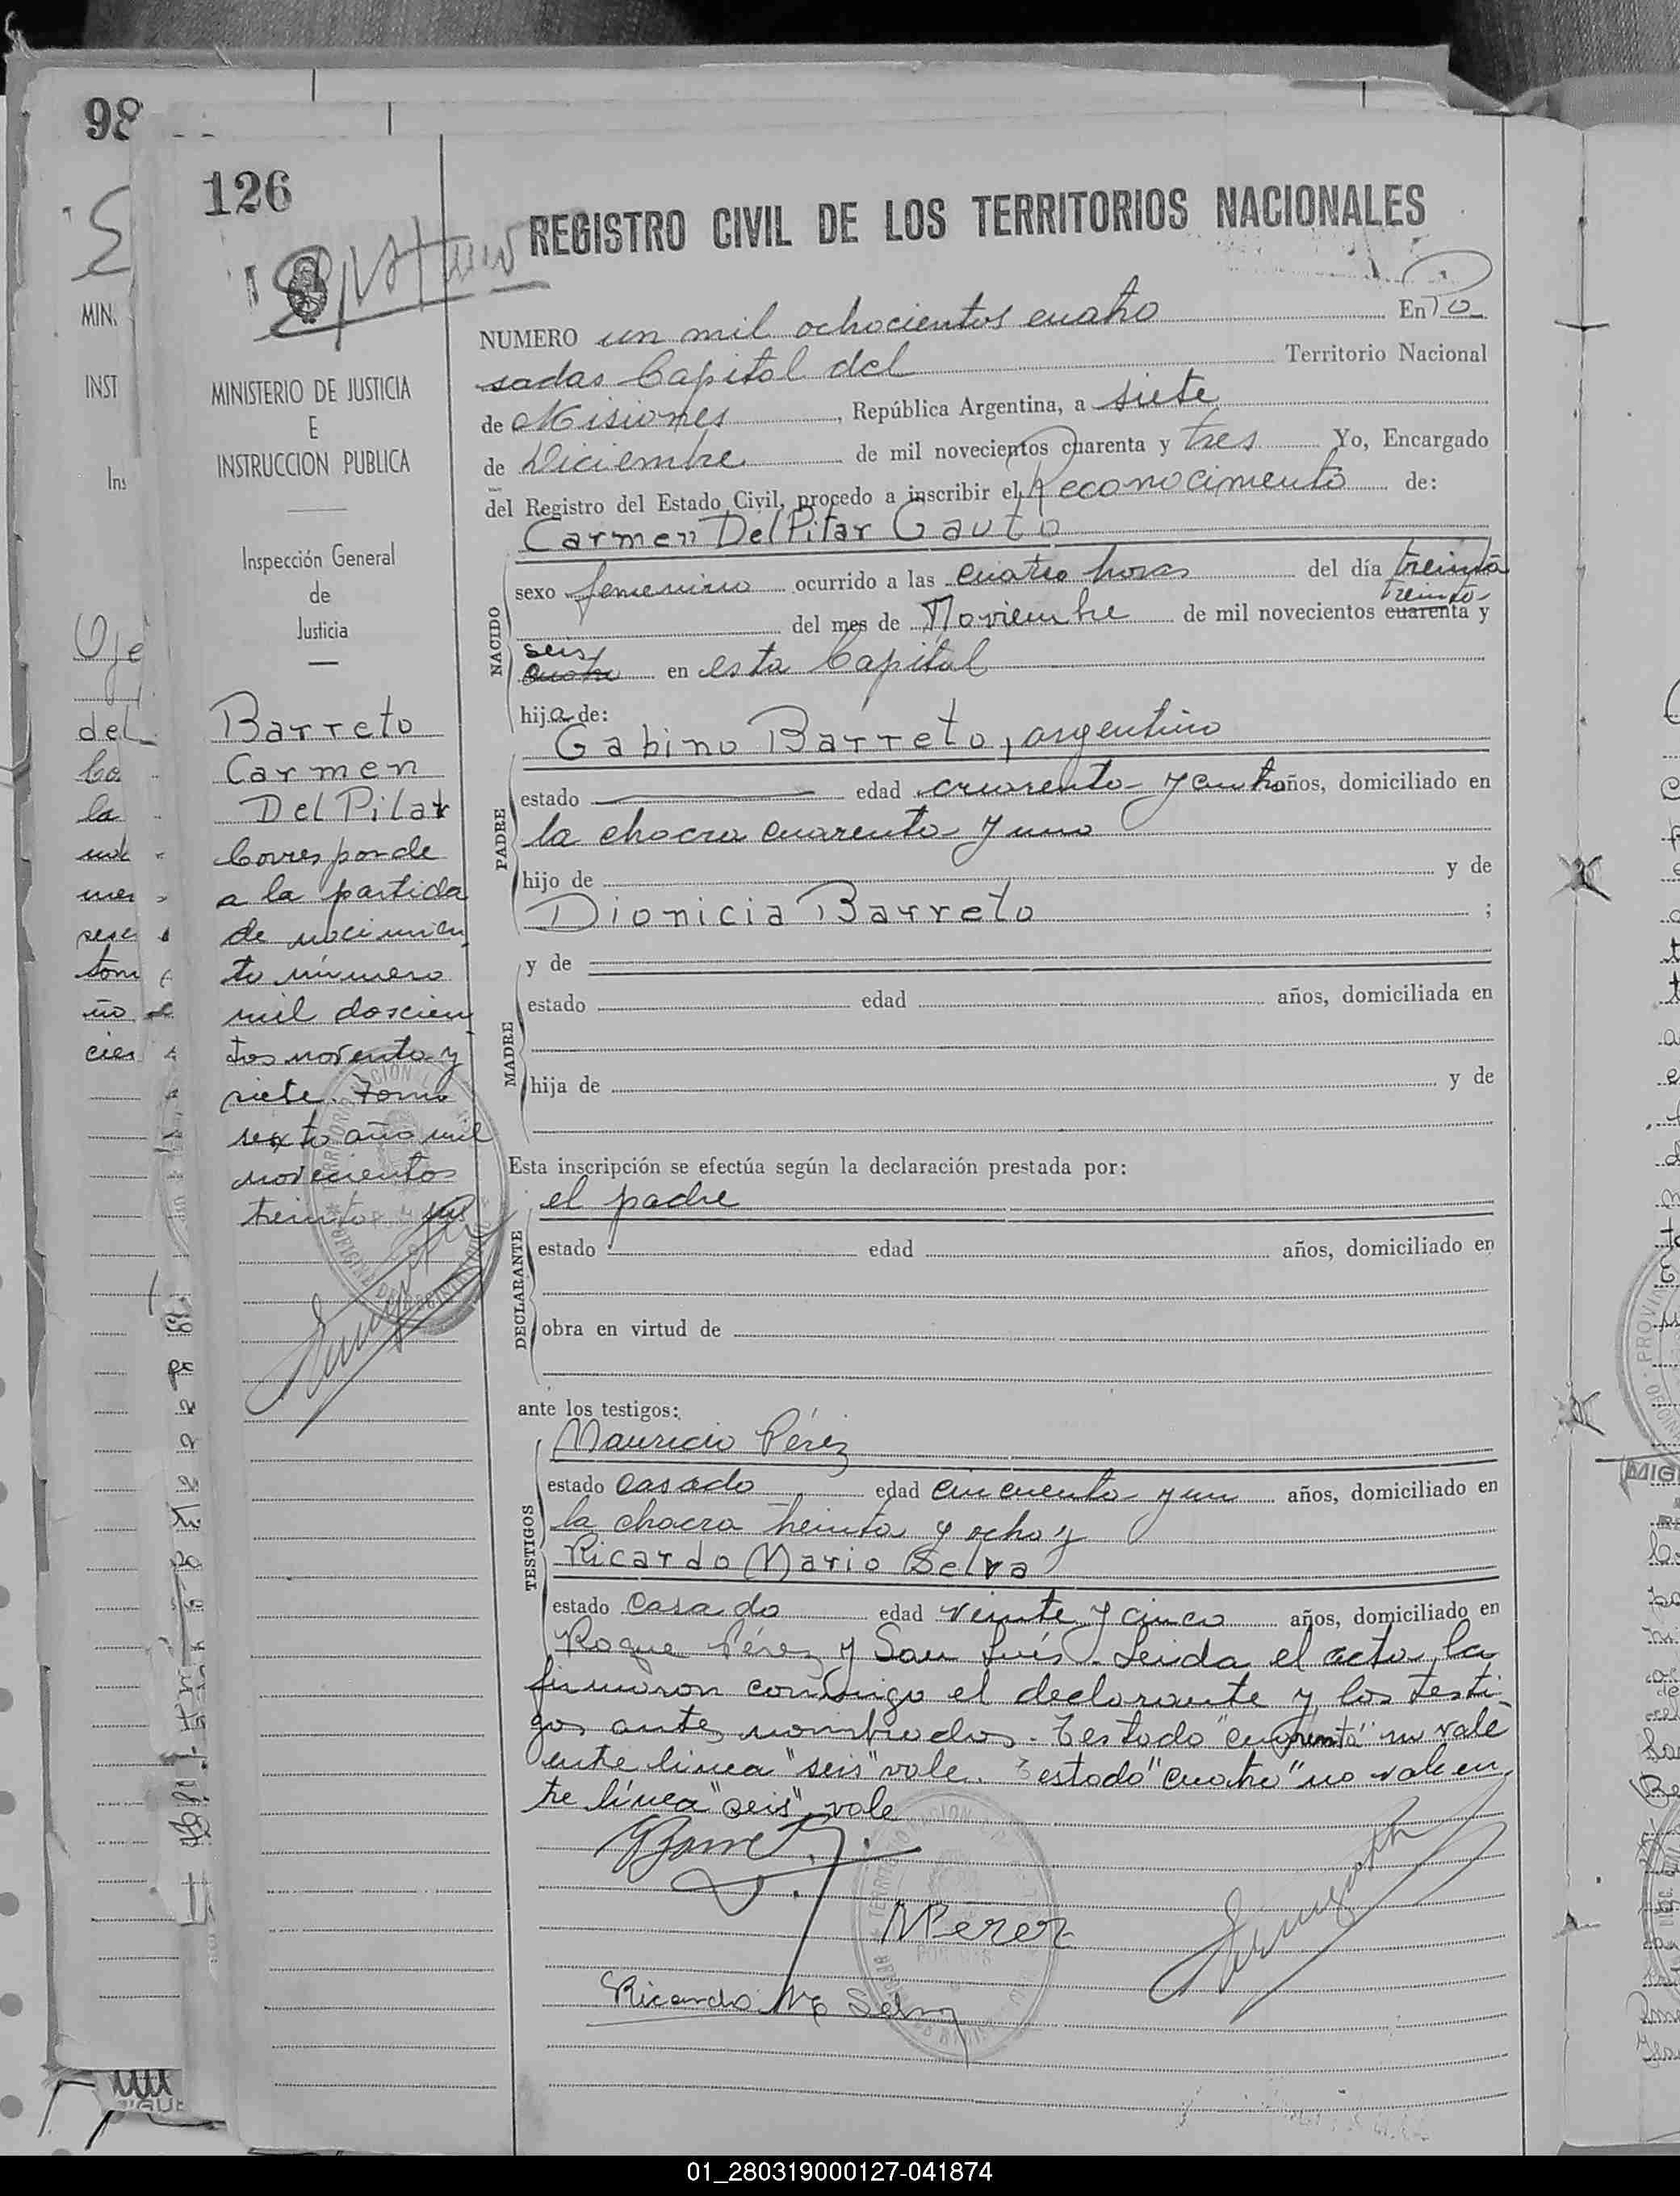 98
126
REGISTRO CIVIL DE LOS TERRITORIOS NACIONALES
NUMERO un mil ochocientos cuatro En Po
sadas Capital del Territorio Nacional
de Misiones, República Argentina, a siete
de Diciembre de mil novecientos cuarenta y tres Yo, Encargado
del Registro del Estado Civil, procedo a inscribir el Reconocimiento de:
Carmen Del Pilar Gauto
NACIDO
sexo femenino ocurrido a las cuatro horas del día treinta
treinta
del mes de Noviembre de mil novecientos cuarenta y
seis
cuatro en esta Capital
hija de:
Gabino Barreto, argentino
PADRE
estado edad cuarenta y cuatro años, domiciliado en
la chacra cuarenta y uno
hijo de y de
Dionicia Barreto ;
y de
MADRE
estado edad años, domiciliada en
hija de y de
Esta inscripción se efectúa según la declaración prestada por:
el padre
DECLARANTE
estado edad años, domiciliado en
obra en virtud de
ante los testigos:
Mauricio Pérez
TESTIGOS
estado casado edad cincuenta y un años, domiciliado en
la chacra treinta y ocho y
Ricardo Mario Selva
estado casado edad veinte y cinco años, domiciliado en
Roque Pérez y San Luís. Leida el acta, la
firmaron conmigo el declarante y los testi
gos antes nombrados. Testado "cuarenta" no vale
entre linea "seis" vale. Testado "cuatro" no vale en
tre línea "seis" vale
MPerez
Ricardo Mo Selva
MINISTERIO DE JUSTICIA
E
INSTRUCCION PUBLICA
Inspección General
de
Justicia
Barreto
Carmen
Del Pilar
Corresponde
a la partida
de nacimien
to número
mil doscien
tos noventa y
siete. Tomo
sexto año mil
novecientos
treinta
MIN.
INST
Ins
del
la
01_280319000127-041874